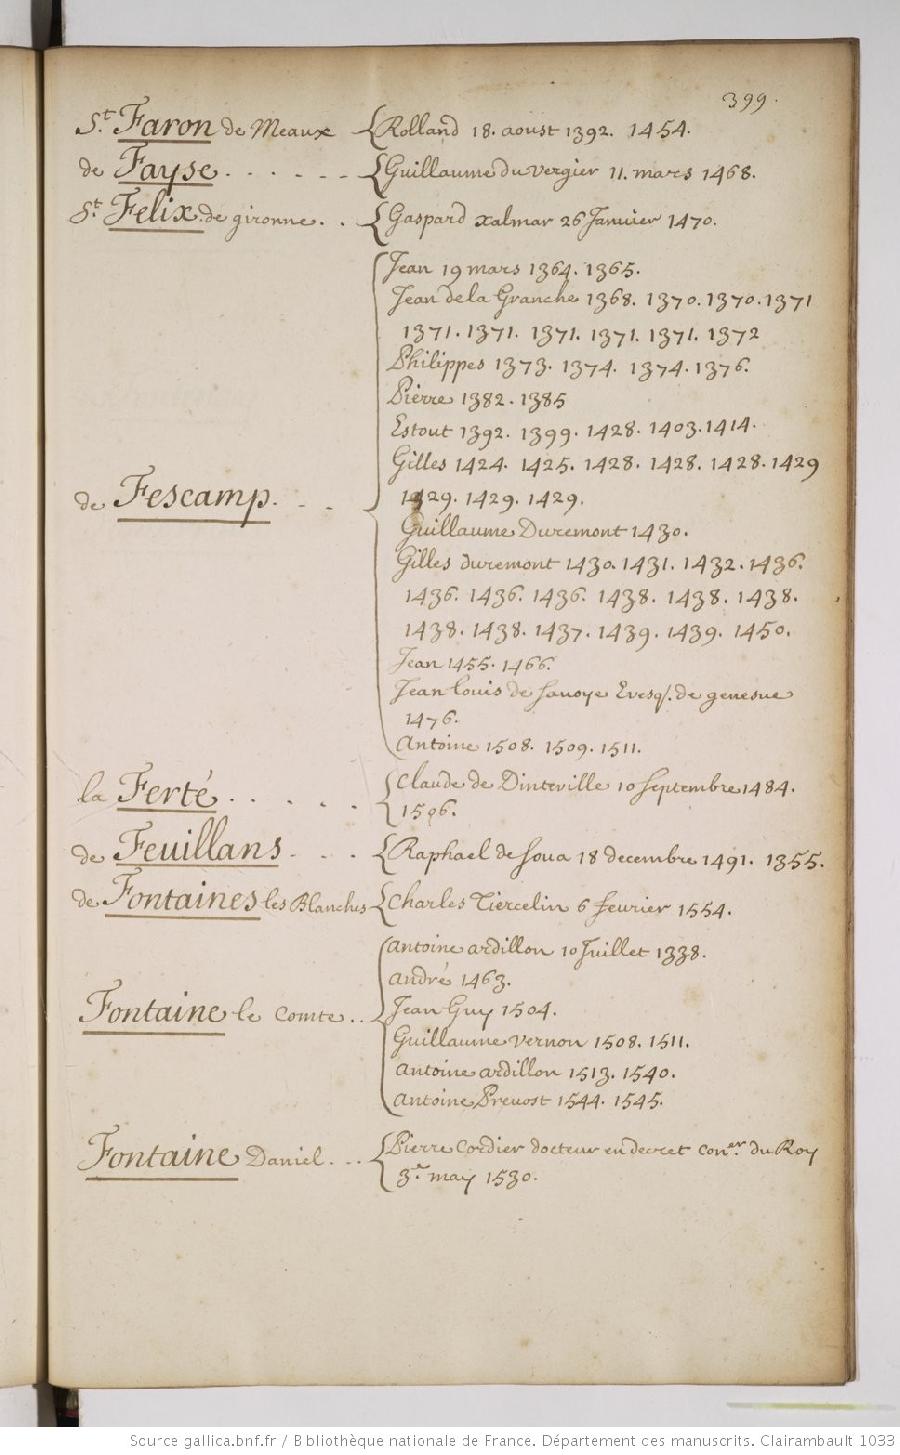 399.
St. Faron de Meaux {Rolland 18. aoust 1392. 1454.
de Fayse. . . . . . {Guillaume du vergier 11. mars 1468.
St. Felix de gironne. . . {Gaspard xalmar 26 Janvier 1470.
Jean 19 mars 1364. 1365.
Jean de la Granche 1368. 1370. 1370. 1371
1371. 1371. 1371. 1371. 1371. 1372
Philippes 1373. 1374. 1374. 1376.
Pierre 1382. 1385
Estout 1392. 1399. 1428. 1403. 1414.
Gilles 1424. 1425. 1428. 1428. 1428. 1429
de Fescamp. . . {
1429. 1429. 1429.
Guillaume Duremont 1430.
Gilles duremont 1430. 1431. 1432. 1436.
1436. 1436. 1436. 1438. 1438. 1438.
1438. 1438. 1437. 1439. 1439. 1450.
Jean 1455. 1466.
Jean Louis de Savoye Evesq. de genesve
1476.
Antoine 1508. 1509. 1511.
la Ferté. . . . . {Claude de Dinteville 10 Septembre 1484.
1506.
de Feuillans. . . {Raphael de Soua 18 decembre 1491. 1355.
de Fontaines les Blanches {Charles Tiercelin 6 fevrier 1554.
antoine ardillon 10 Juillet 1338.
andré 1463.
Fontaine le Comte. . {Jean Guy 1504.
Guillaume vernon 1508. 1511.
antoine ardillon 1513. 1540.
antoine Prevost 1544. 1545.
Fontaine Daniel. . . {Pierre Cordier docteur en decret coner. du Roy
3e may 1530.
Source gallica.bnf.fr / Bibliothèque nationale de France. Département des manuscrits. Clairambault 1033